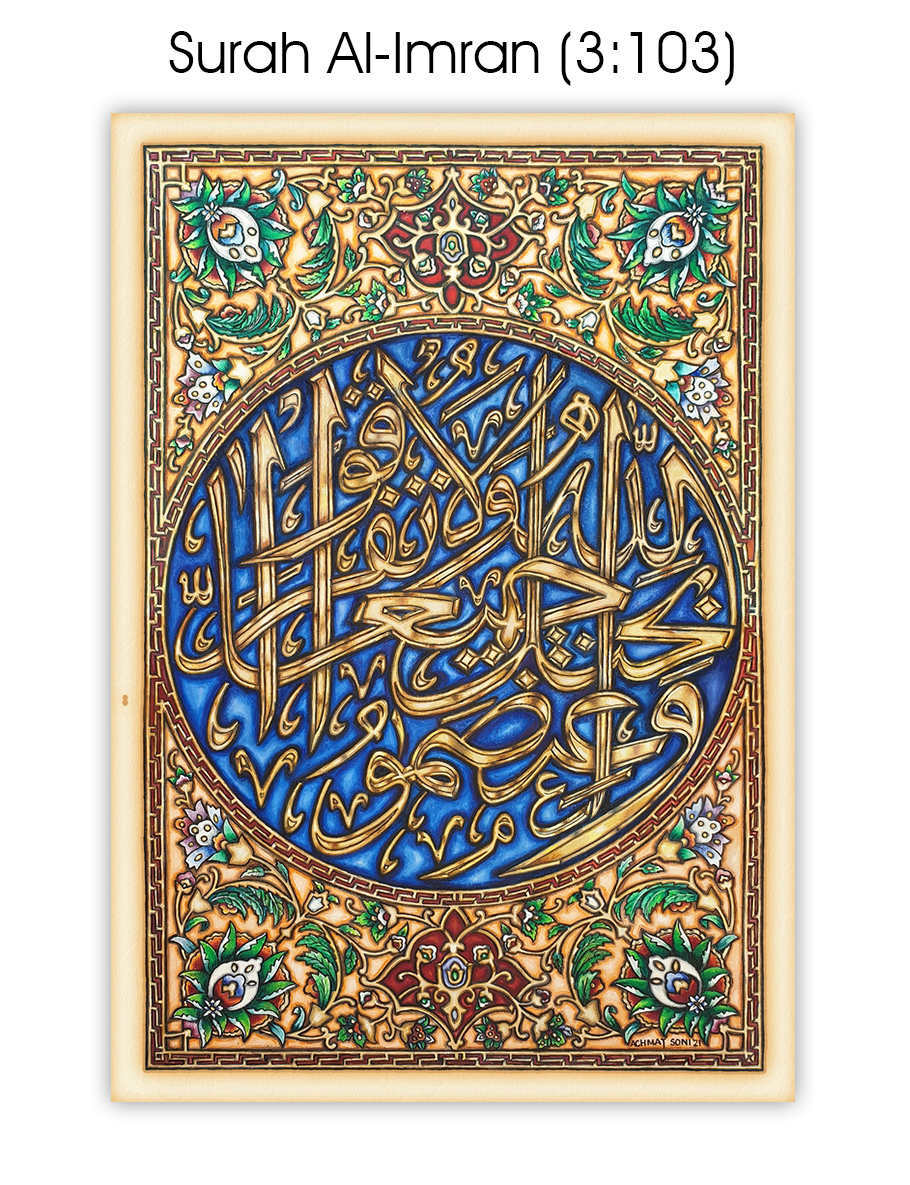 Surah Al-Imran (3:103)
واعتصموا
بحبل الله
جميعا
ولا تفرقوا
ACHMAT SONI '21